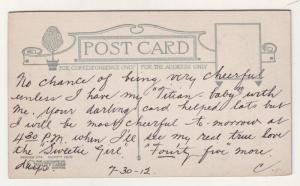 POST CARD
FOR CORRESPONDENCE ONLY
FOR THE ADDRESS ONLY
No chance of being very cheerful
unless I have my "Titian-baby" with
me. Your darling card helped lots but
I will be most cheerful to-morrow at
4:30 P.M. when I'll see my real true love
the "Sweetie Girl".
"Fourty five" more.
7-30-12
C